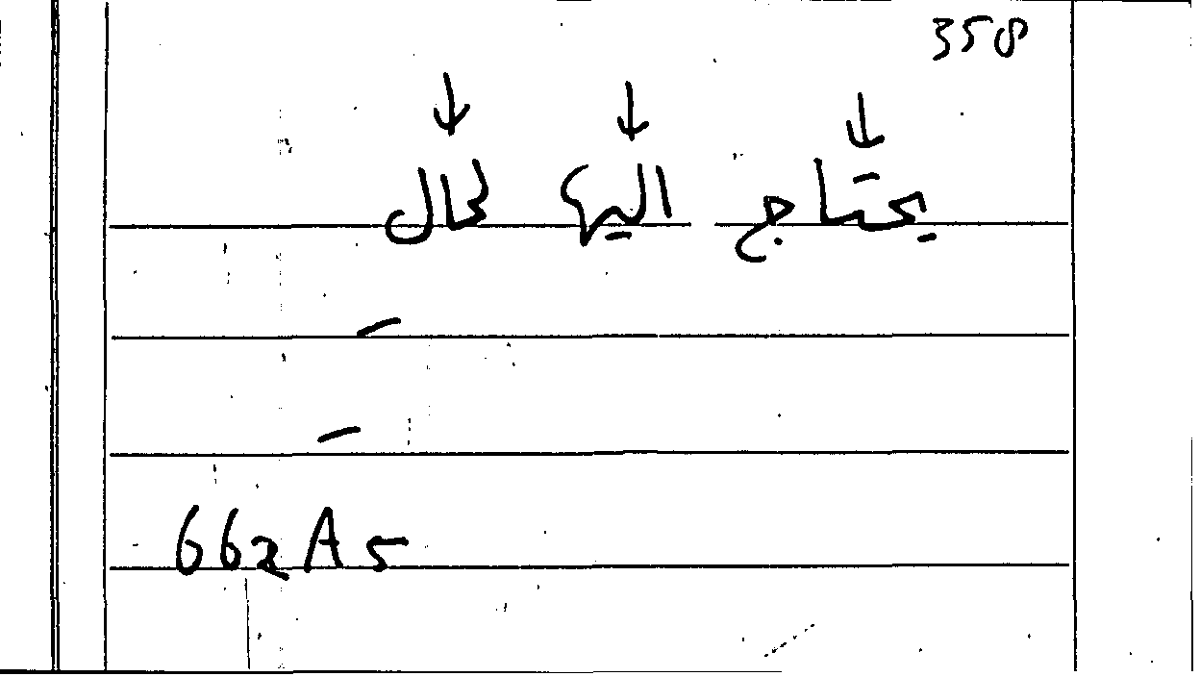 358
يحتاج اليها لحال
662A5